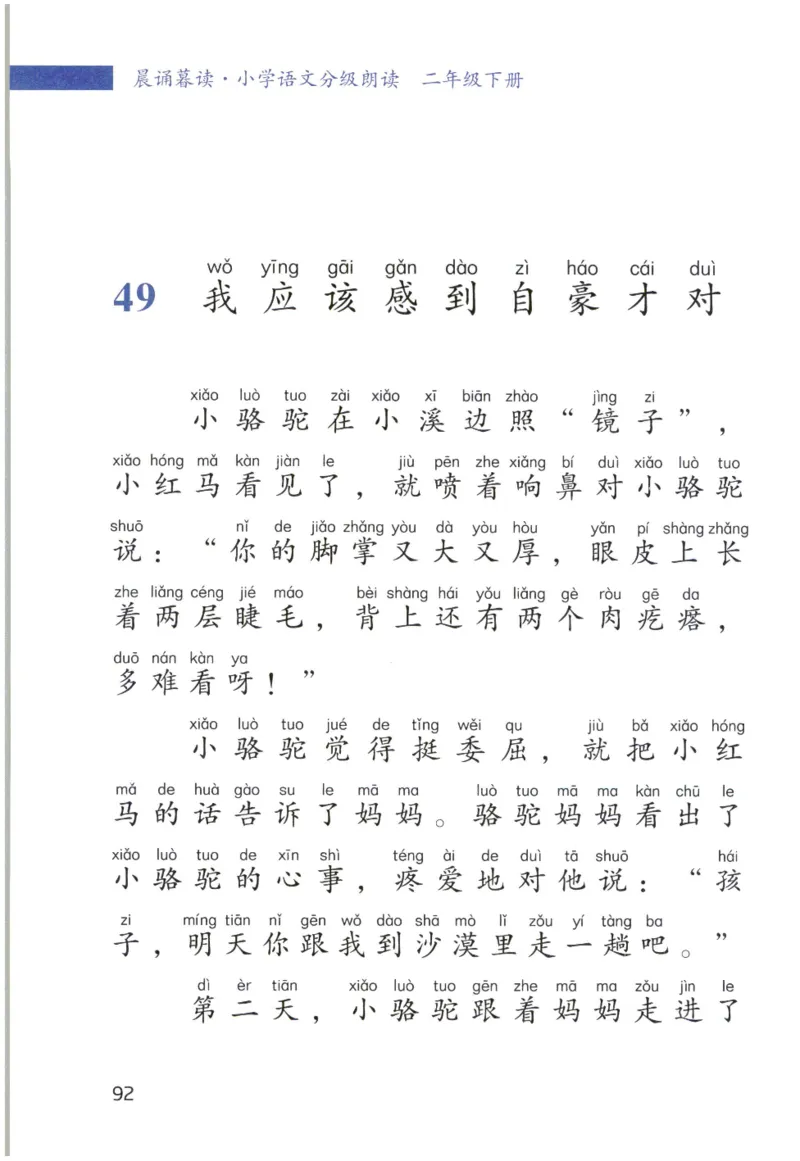 晨诵暮读·小学语文分级朗读 二年级下册
wǒ yīng gāi gǎn dào zì háo cái duì
49 我应该感到自豪才对
xiǎo luò tuo zài xiǎo xī biān zhào jìng zi
小骆驼在小溪边照“镜子”，
xiǎo hóng mǎ kàn jiàn le jiù pēn zhe xiǎng bí duì xiǎo luò tuo
小红马看见了，就喷着响鼻对小骆驼
shuō nǐ de jiǎo zhǎng yòu dà yòu hòu yǎn pí shàng zhǎng
说：“你的脚掌又大又厚，眼皮上长
zhe liǎng céng jié máo bèi shàng hái yǒu liǎng gè ròu gē da
着两层睫毛，背上还有两个肉疙瘩，
duō nán kàn ya
多难看呀！”
xiǎo luò tuo jué de tǐng wěi qu jiù bǎ xiǎo hóng
小骆驼觉得挺委屈，就把小红
mǎ de huà gào su le mā ma luò tuo mā ma kàn chū le
马的话告诉了妈妈。骆驼妈妈看出了
xiǎo luò tuo de xīn shì téng ài de duì tā shuō hái
小骆驼的心事，疼爱地对他说：“孩
zi míng tiān nǐ gēn wǒ dào shā mò lǐ zǒu yí tàng ba
子，明天你跟我到沙漠里走一趟吧。”
dì èr tiān xiǎo luò tuo gēn zhe mā ma zǒu jìn le
第二天，小骆驼跟着妈妈走进了
92